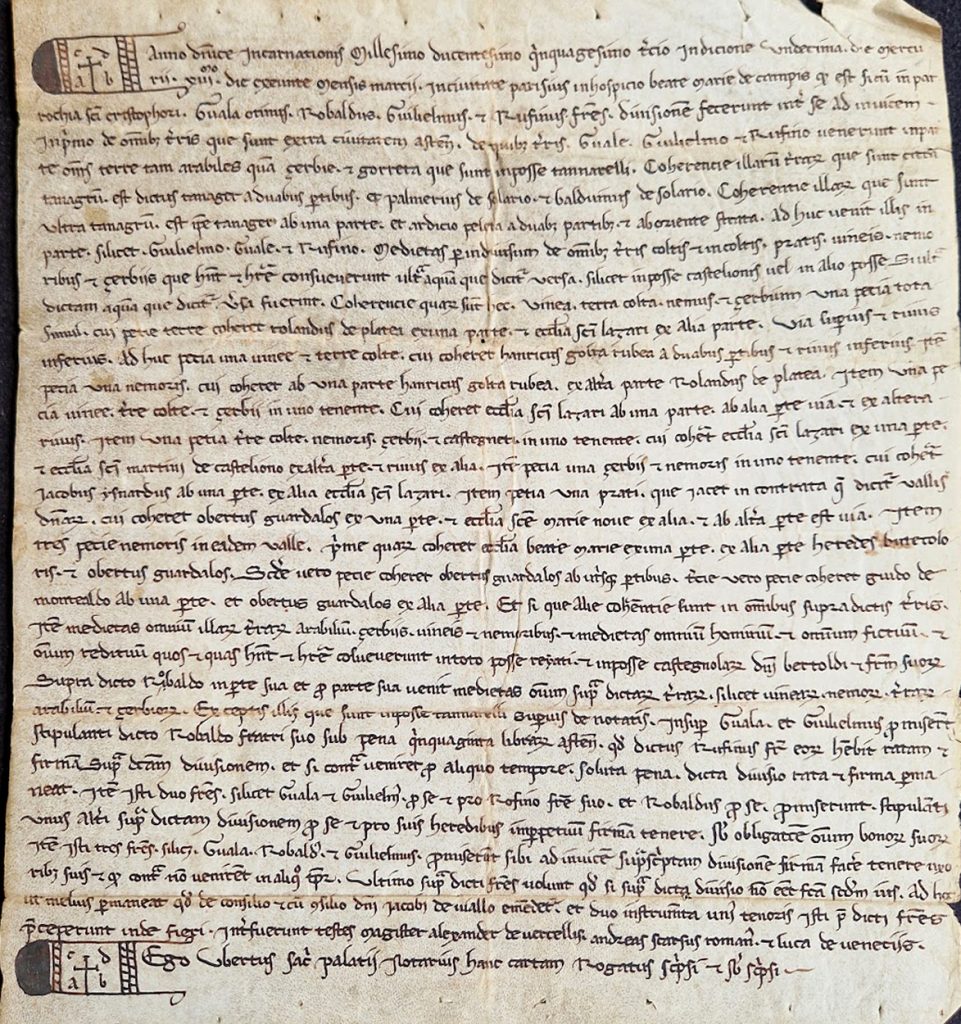 Anno dñice Incarnationis Millesimo ducentesimo q̃nquagesimo t̃cio Indicione Undecima. die mercu
rii. xiiii. die exeunte mensis marcii. In civitate parisius in hospicio beate Marie de campis qd est sicũ in par
rochia sc̃i cristophori. Guala otinus. Robaldus. Guilielmus. & Rufinus fres. divisionẽ fecerunt int̃ se ad invicem.
In p̃mo de omib; t̃ris que sunt extra civitatem asteñ. de quib; t̃ris. Guale. Guilielmo & Rufino venerunt in pa
te oñis terre tam arabiles quã gerbie. & gorreta que sunt in posse tannarelli. Coherencie illarũ t̃rar que sunt citra
tanagrũ. est dictus tanager a duabus p̃tibus. & palmerius de solario. & balduinus de solario. Coherentie illar que sunt
ultra tanagrũ. est ip̃e tanager ab una parte. et ardicio peleta a duab; partib; & ab oriente strata. Ad huc venit illis in
parte. silicet. Guilielmo. Guale. & Rufino. Medietas p indivisum de omib; t̃ris coltis & incoltis. pratis. vineis. nemo
ribus & gerbiis que hñt & hr̃e consueverunt ult̃ aquã que dicit̃ versa. silicet in posse castelionis vel in alio posse si ult̃
dictam aquã que dicit̃ v̾sa fuerint. Coherencie quar sũt hec. Vinea. terra colta. nemus & gerbium una pecia tota
simul. cui pecie terre coheret rolandus de platea ex una parte. & ecclia sc̃i lazari ex alia parte. via sup̾ius & rivus
inferius. Ad huc pecia una vinee & terre colte. cui coheret hanricus golta rubea a duabus p̃tibus & rivus inferius. Itẽ
pecia una nemoris. cui coheret ab una parte hanricus golta rubea. ex alt̃a parte Rolandus de platea. Item una pe
cia vinee. t̃re colte. & gerbii in uno tenente. Cui coheret ecclia sc̃i lazari ab una parte. ab alia p̃te via. & ex altera
rivus. Item una petia t̃re colte. nemoris. gerbii. & castegneti. in uno tenente. cui cohet̃ ecclia sc̃i lazari ex una p̃te.
& ecclia sc̃i martini de casteliono ex alt̃a p̃te. & rivus ex alia. Itẽ pecia una gerbis & nemoris in uno tenente. cui cohet̃
Jacobus ysnardus ab una p̃te. ex alia ecclia sc̃i lazari. Item petia una prati. que iacet in contrata q̃ dicit̃ vallis
dñar. cui coheret obertus guardalos ex una p̃te. & ecclia sc̃e Marie nove ex alia. & ab alt̃a p̃te est via. Item
tres pecie nemoris in eadem valle. p̃me quar coheret ecclia beate Marie ex una p̃te. ex alia p̃te heredes
ris. & obertus guardalos. Scde vero pecie coheret obertus guardalos ab ut̃sq; p̃tibus. t̃cie vero pecie coheret guido de
montealdo ab una p̃te. et obertus guardalos ex alia p̃te. Et si que alie coh̾entie sunt in omibus supradictis t̃ris.
Itẽ medietas omniũ illar t̃rar arabiliũ. gerbiis. vineis & nemoribus. & medietas omniũ hominũ. & omnium fictiuũ. &
oĩum redituũ quos & quas hñt & hr̃e consueverunt in toto posse revati. & in posse castegnolar dñi bertoldi & frm suor
Supra dicto Robaldo in p̃te sua et p parte sua venit medietas oĩum sup̃ dictar t̃rar. silicet vinear. nemor. t̃rar
arabiliũ & gerbior. Exceptis illis que sunt in posse tannarelli superius denotatis. Insup̾ Guala. et Guilielmus p miserũt
stipulanti dicto Robaldo fratri suo sub pena q̃nquaginta librar asteñ. qd dictus Rufinus fr̃ eor hẽbit ratam &
firmã sup̃ dc̃am divisionem. et si cont̃ veniret p aliquo tempore. soluta pena. dicta divisio rata & firma p̾ma
neat. Itẽ isti duo fres. silicet Guala & Guilielm̾. p se & pro Rofino fr̃e suo. et Robaldus p se. promiserunt. stipulãti
unus alt̃i sup̃ dictam divisionem p se & pro suis heredibus imp̾petuũ firmã tenere. sb obligatõe oĩum bonor suor
Itẽ isti tres fres. silic;. Guala. Robald̾. & Guilielmus. promiserũt sibi ad invicẽ sup̃sc̃ptam divisionẽ firmã face tenere uxo
rib; suis & qd cont̃ nõ venirent in aliq̊ tp̃r. Ultimo sup̃ dicti fres volunt qd si sup̃ dicta divisio nõ eẽt fc̃a scdm ius. ad hc
ut melius permaneat qd de consilio & cũ silio dñi Jacobi de viallo emẽdet̃. et duo instrumta uni̾ tenoris isti p̃ dicti fres
p̃ceperunt inde fieri. Int̃fuerunt testes magister alexander de vercellis. andreas scarsus romañ. & luca de veneciis.
Ego Ubertus sac̃ palatii Notarius hanc cartam Rogatus sc̃psi & sb sc̃psi